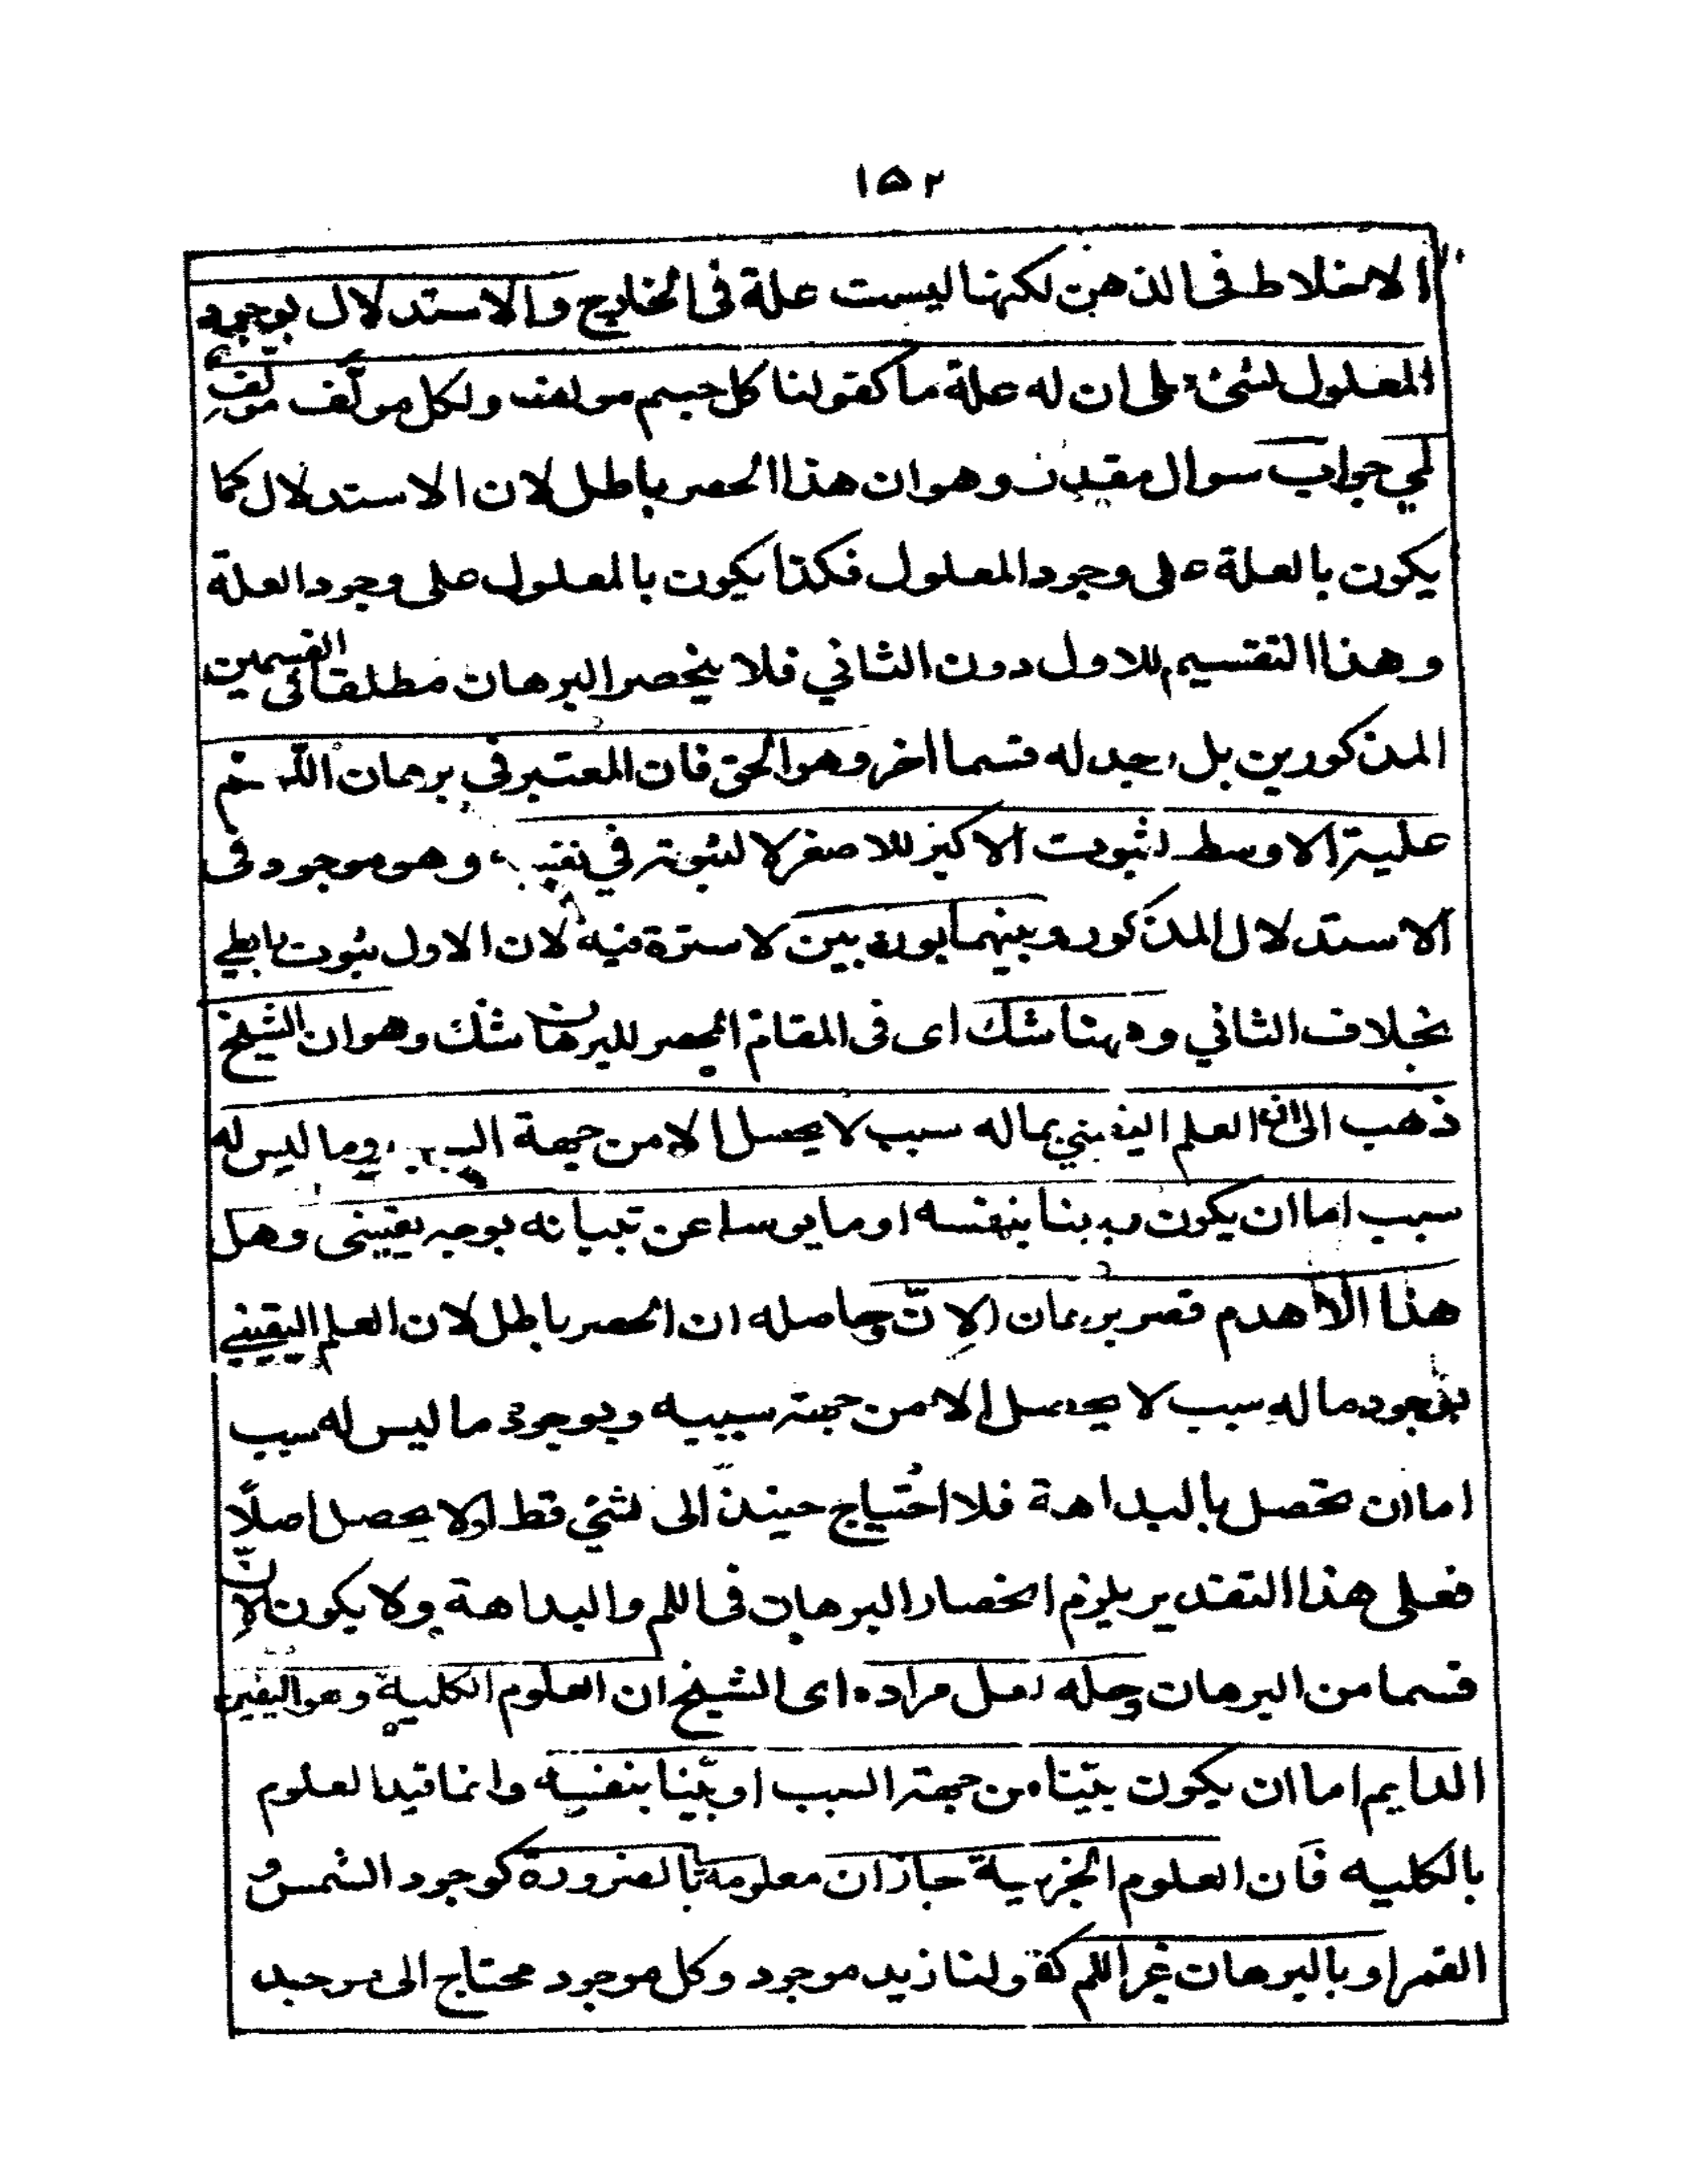 ١٥٢
الاخلاط فى الذهن لكنها ليست علة فى الخارج والاستدلال بوجود
المعلول لشئ على ان له علة ما كقولنا كل جسم مولف ولكل مولَّف مولِّف
لمي جواب سوال مقدر وهو ان هذا الحصر باطل لان الاستدلال كما
يكون بالعلة على وجود المعلول فكذا يكون بالمعلول على وجود العلة
وهذا التقسيم للاول دون الثاني فلا ينحصر البرهان مطلقا فى القسمين
المذكورين بل يوجد له قسما اخر وهو الحق فان المعتبر في برهان اللّم
علية الاوسط لثبوت الاكبر للاصغر لا لثبوته في نفسه وهو موجود فى
الاستدلال المذكور وبينهما بون بين لا سترة فيه لان الاول ثبوت رابطي
بخلاف الثاني وههنا شك اى فى المقام الحصر للبرهان شك وهو ان الشيخ
ذهب الى ان العلم اليقيني بماله سبب لا يحصل الا من جهة السبب وما ليس له
سبب اما ان يكون بينا بنفسه او مايوسا عن تبيانه بوجه يقينى وهل
هذا الا هدم قصر برهان الإنّ وحاصله ان الحصر باطل لان العلم اليقيني
بوجود ما له سبب لا يحصل الا من جهته سببه وبوجود ما ليس له سبب
اما ان تحصل بالبداهة فلا احتياج حينئذ الى شئي قط او لا يحصل اصلًا
فعلى هذا التقدير يلزم انحصار البرهان فى اللم والبداهة ولا يكون الإنّ
قسما من البرهان وحله لعل مراده اى الشيخ ان العلوم الكلية وهو اليقين
الدايم اما ان يكون بيّنا من جهة السبب او بيّنا بنفسه وانما قيد العلوم
بالكليه فان العلوم الجزيية جاز ان معلومة بالضرورة كوجود الشمس و
القمر او بالبرهان غير اللم كقولنا زيد موجود وكل موجود محتاج الى موجد